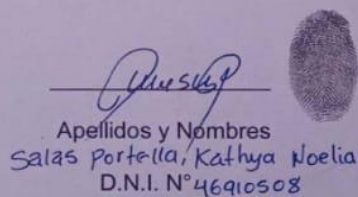 Apellidos y Nombres
Salas Portella, Kathya Noelia
D.N.I. N° 46910508